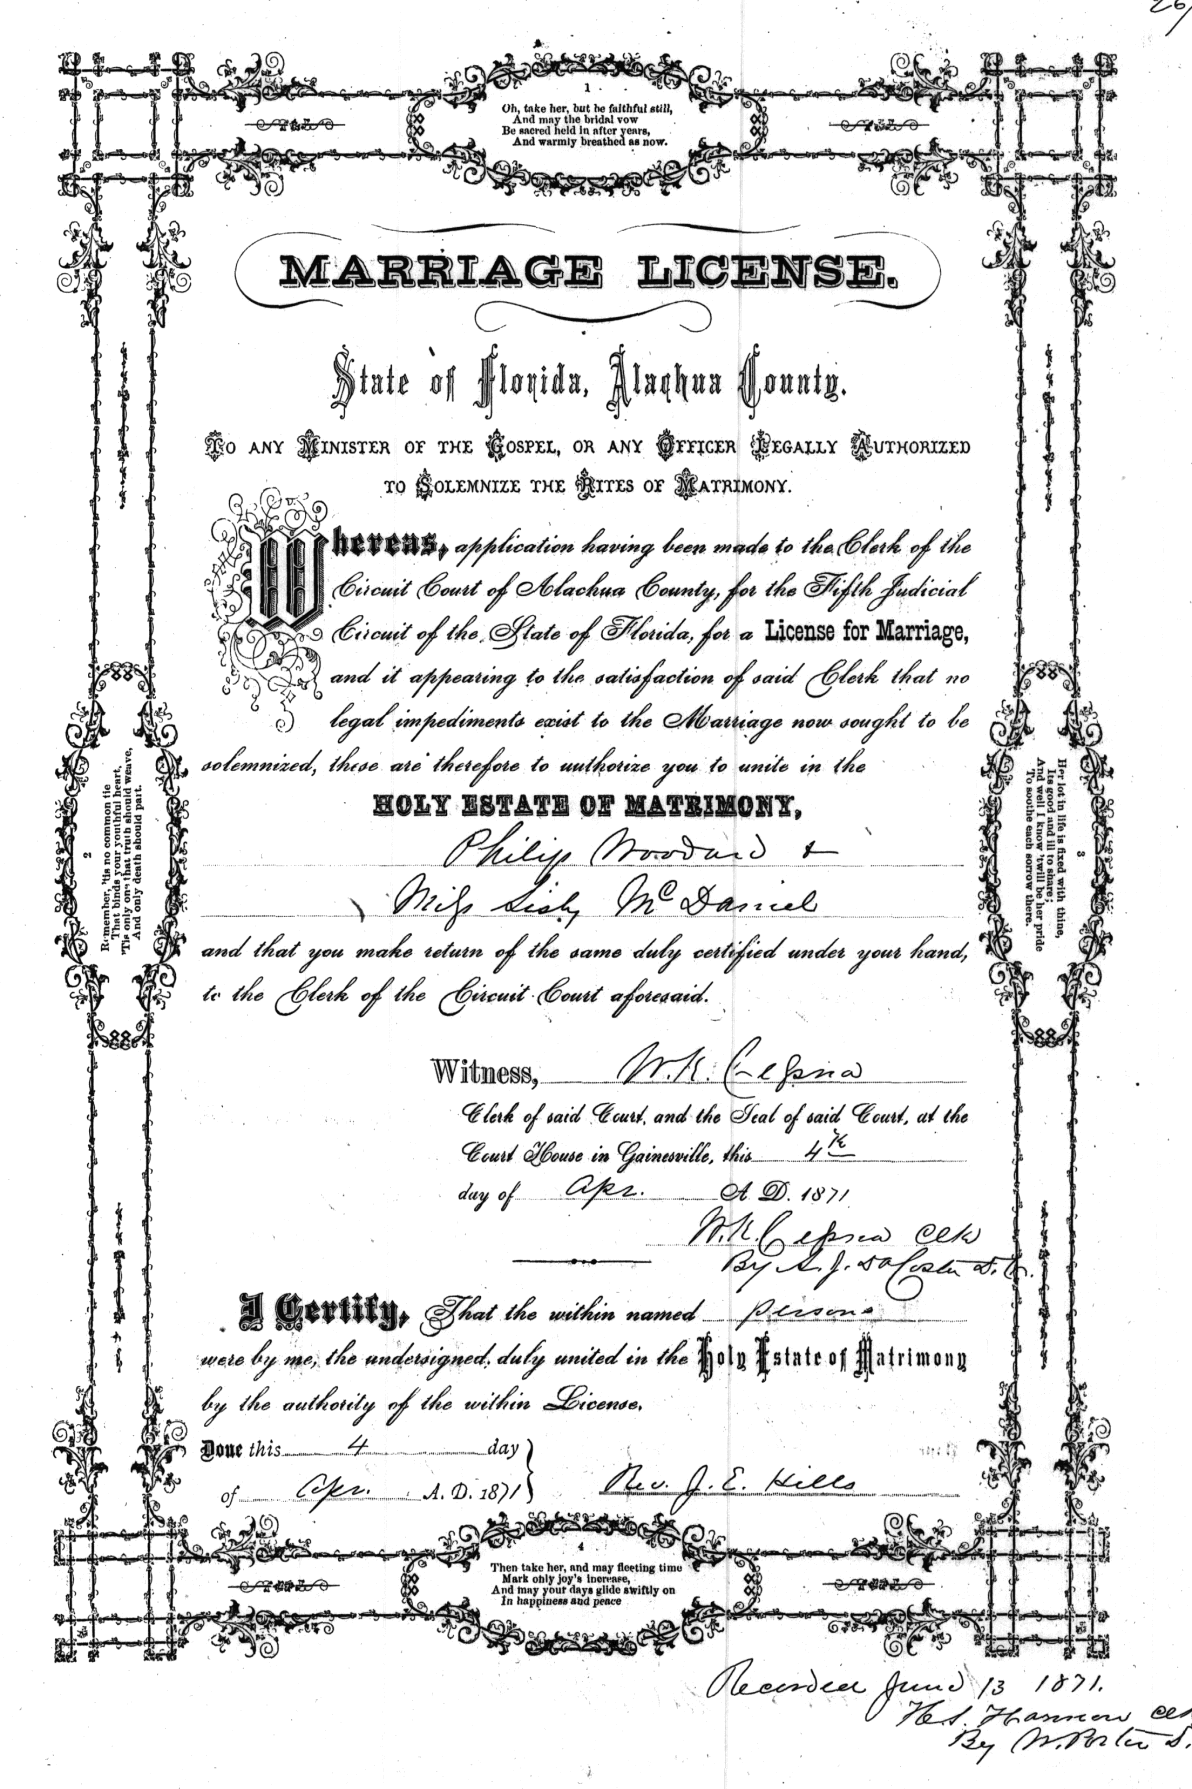 1
Oh, take her, but be faithful still,
And may the bridal vow
Be sacred held in after years,
And warmly breathed as now.
MARRIAGE LICENSE.
State of Florida, Alachua County.
TO ANY MINISTER OF THE GOSPEL, OR ANY OFFICER LEGALLY AUTHORIZED
TO SOLEMNIZE THE RITES OF MATRIMONY.
Whereas, application having been made to the Clerk of the
Circuit Court of Alachua County, for the Fifth Judicial
Circuit of the State of Florida, for a License for Marriage,
and it appearing to the satisfaction of said Clerk that no
legal impediments exist to the Marriage now sought to be
solemnized, these are therefore to authorize you to unite in the
HOLY ESTATE OF MATRIMONY,
Philip Woodard &
Miss Sisly McDaniel
and that you make return of the same duly certified under your hand,
to the Clerk of the Circuit Court aforesaid.
Witness, W. K. Cessna
Clerk of said Court, and the Seal of said Court, at the
Court House in Gainesville, this 4th
day of Apr. A. D. 1871
W. K. Cessna Clk
By S. J. DaCosta D. C.
I Certify, That the within named persons
were by me, the undersigned, duly united in the Holy Estate of Matrimony
by the authority of the within License.
Done this 4 day
of Apr. A. D. 1871
Rev. J. E. Hills
2
Remember, 'tis no common tie
That binds your youthful heart,
'Tis only one that truth should weave,
And only death should part.
3
Her lot in life is fixed with thine,
Its good and ill to share;
And well I know 'twill be her pride
To soothe each sorrow there.
4
Then take her, and may fleeting time
Mark only joy's increase,
And may your days glide swiftly on
In happiness and peace
Recorded June 13 1871.
By W. Porter D.